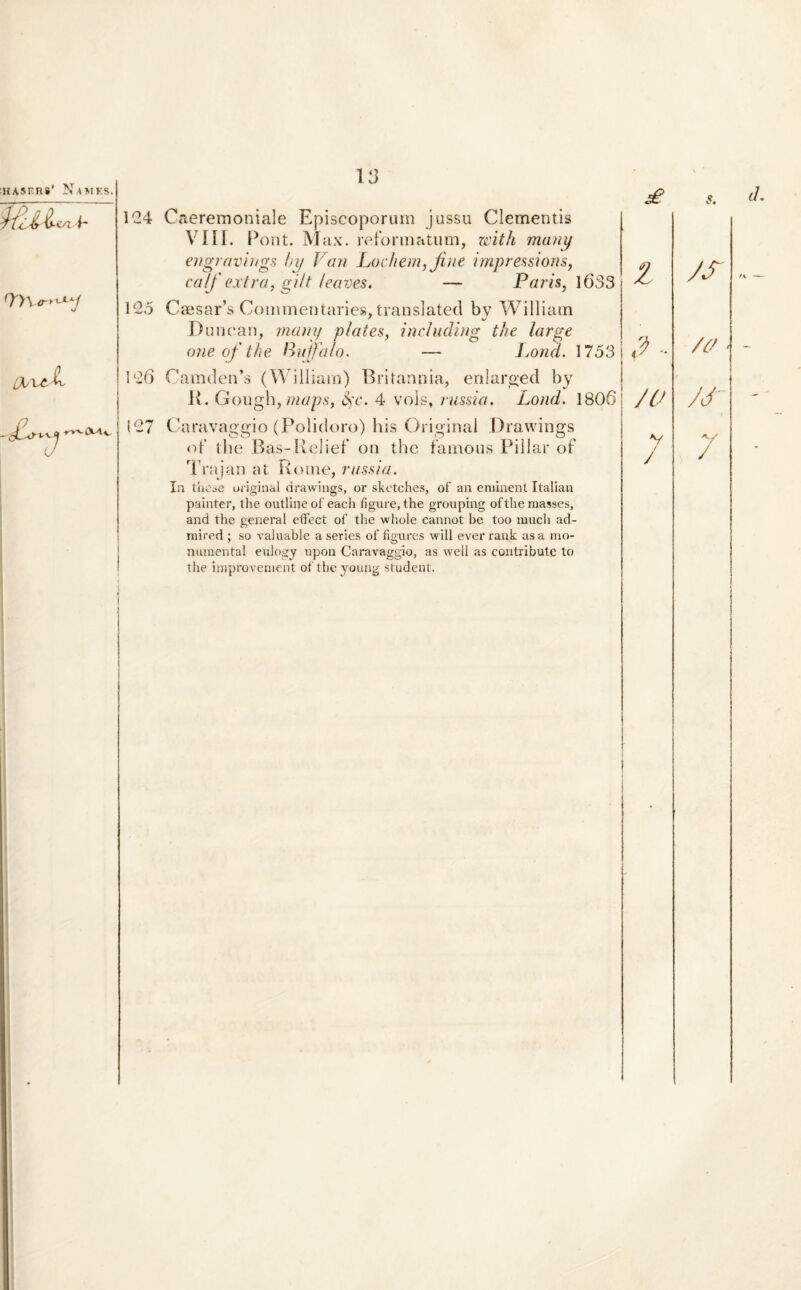 13
HASERS' NAMES.
£ s. d.
124 Caeremoniale Episcoporum jussu Clementis
VIII. Pont. Max. reformatum, with many
engravings by Van Lochem, fine impressions,
calf extra, gilt leaves. — Paris, 1633
2 15 —
125 Cæsar's Commentaries, translated by William
Duncan, many plates, including the large
one of the Buffalo. — Lond. 1753
3 10 -
126 Camden's (William) Britannia, enlarged by
R. Gough, maps, &c. 4 vols, russia. Lond. 1806
10 15 -
Longman
127 Caravaggio (Polidoro) his Original Drawings
of the Bas-Relief on the famous Pillar of
Trajan at Rome, russia.
7 7 -
In these original drawings, or sketches, of an eminent Italian
painter, the outline of each figure, the grouping of the masses,
and the general effect of the whole cannot be too much ad-
mired ; so valuable a series of figures will ever rank as a mo-
numental eulogy upon Caravaggio, as well as contribute to
the improvement of the young student.